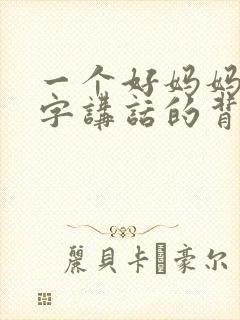 一个好妈妈
字講話的背
麗貝卡·豪尔